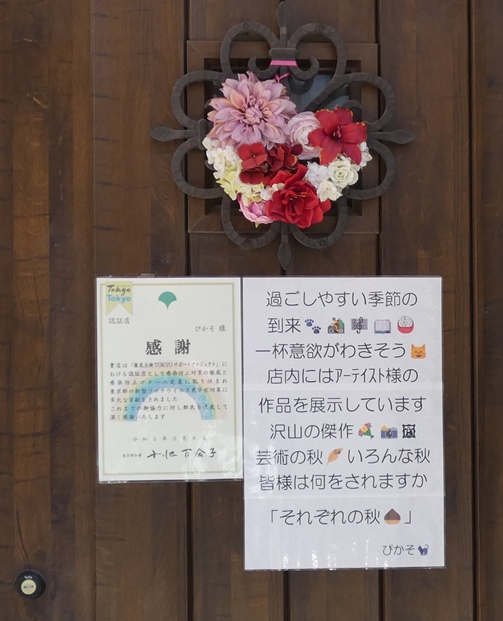 Tokyo
Tokyo
認証店
ぴかそ 様
感謝
貴店は「徹底点検TOKYOサポートプロジェクト」に
おける認証店として感染防止対策の徹底と
感染防止マナーの定着に取り組まれ
東京都の新型コロナウイルス感染症対策に
多大な貢献をされました
これまでの御協力に対し都民を代表して
深く感謝いたします
東京都知事 小池百合子
過ごしやすい季節の
到来🐾💑🎼📖🍚
一杯意欲がわきそう🐱
店内にはアーティスト様の
作品を展示しています
沢山の傑作💐📸🖼
芸術の秋🍠いろんな秋
皆様は何をされますか
「それぞれの秋🌰」
ぴかそ🐈‍⬛